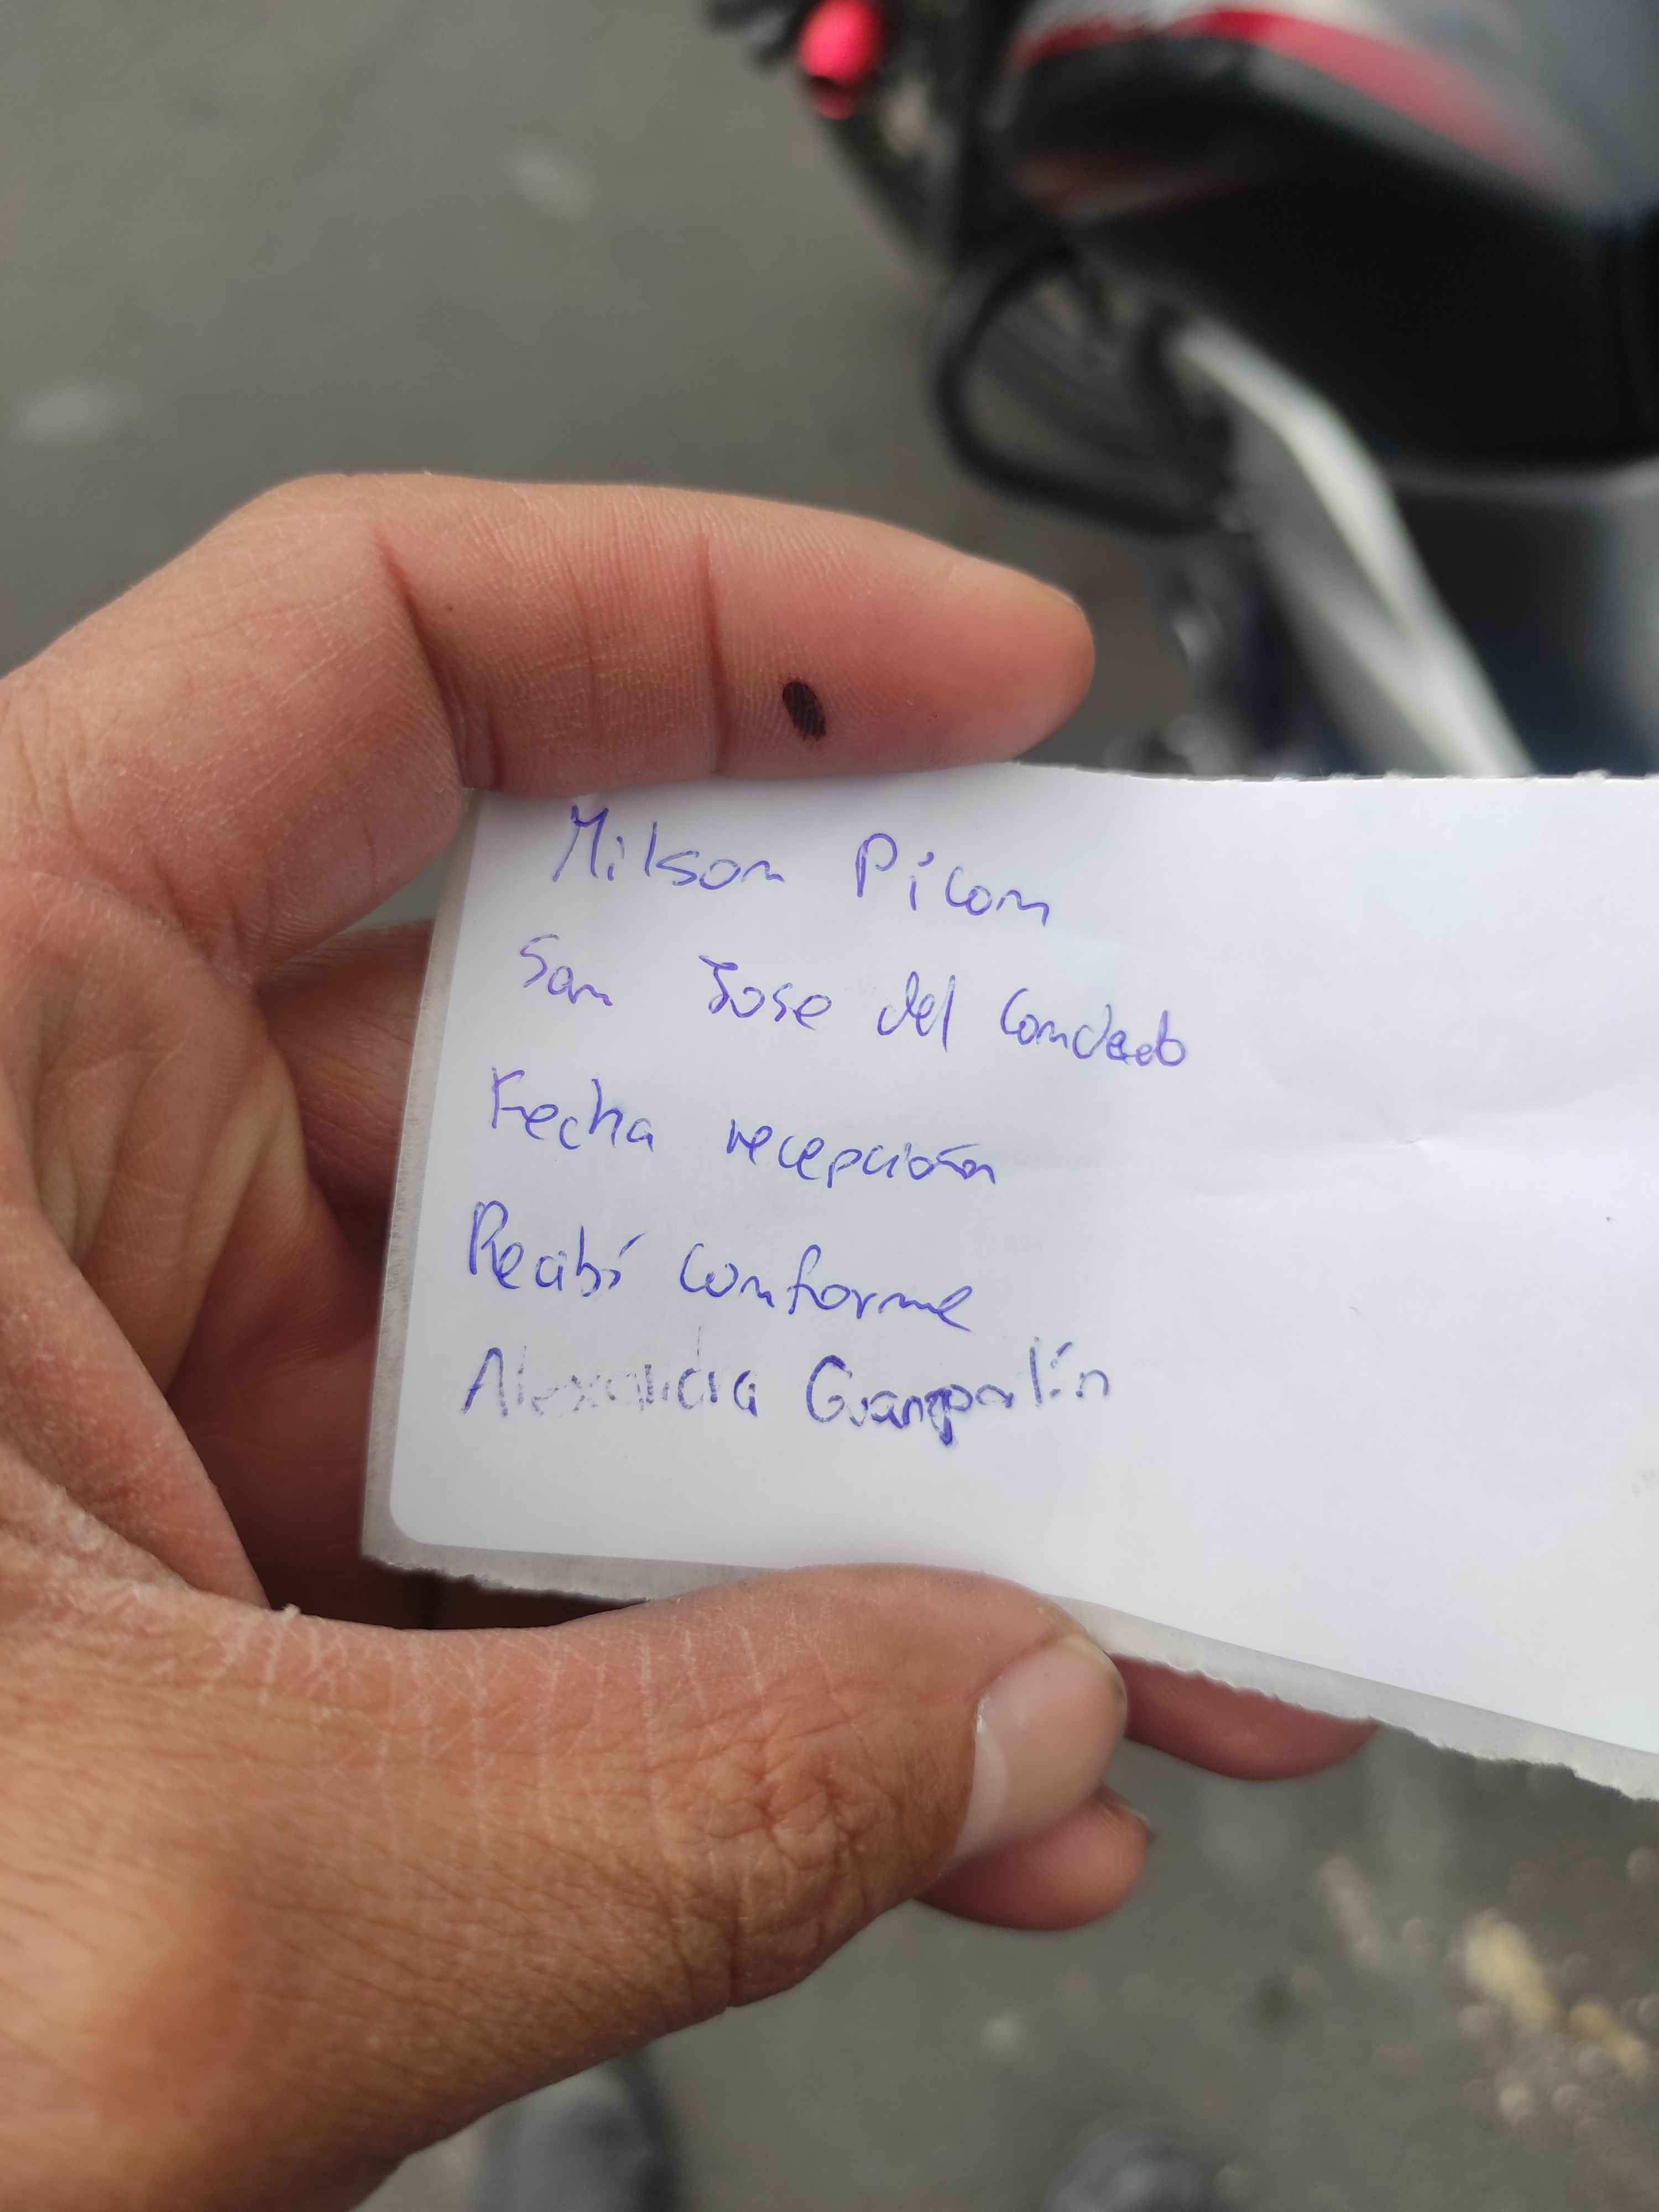 Milson Picon
San Jose del Condado
Fecha recepción
Recibí conforme
Alexandra Guanpatín